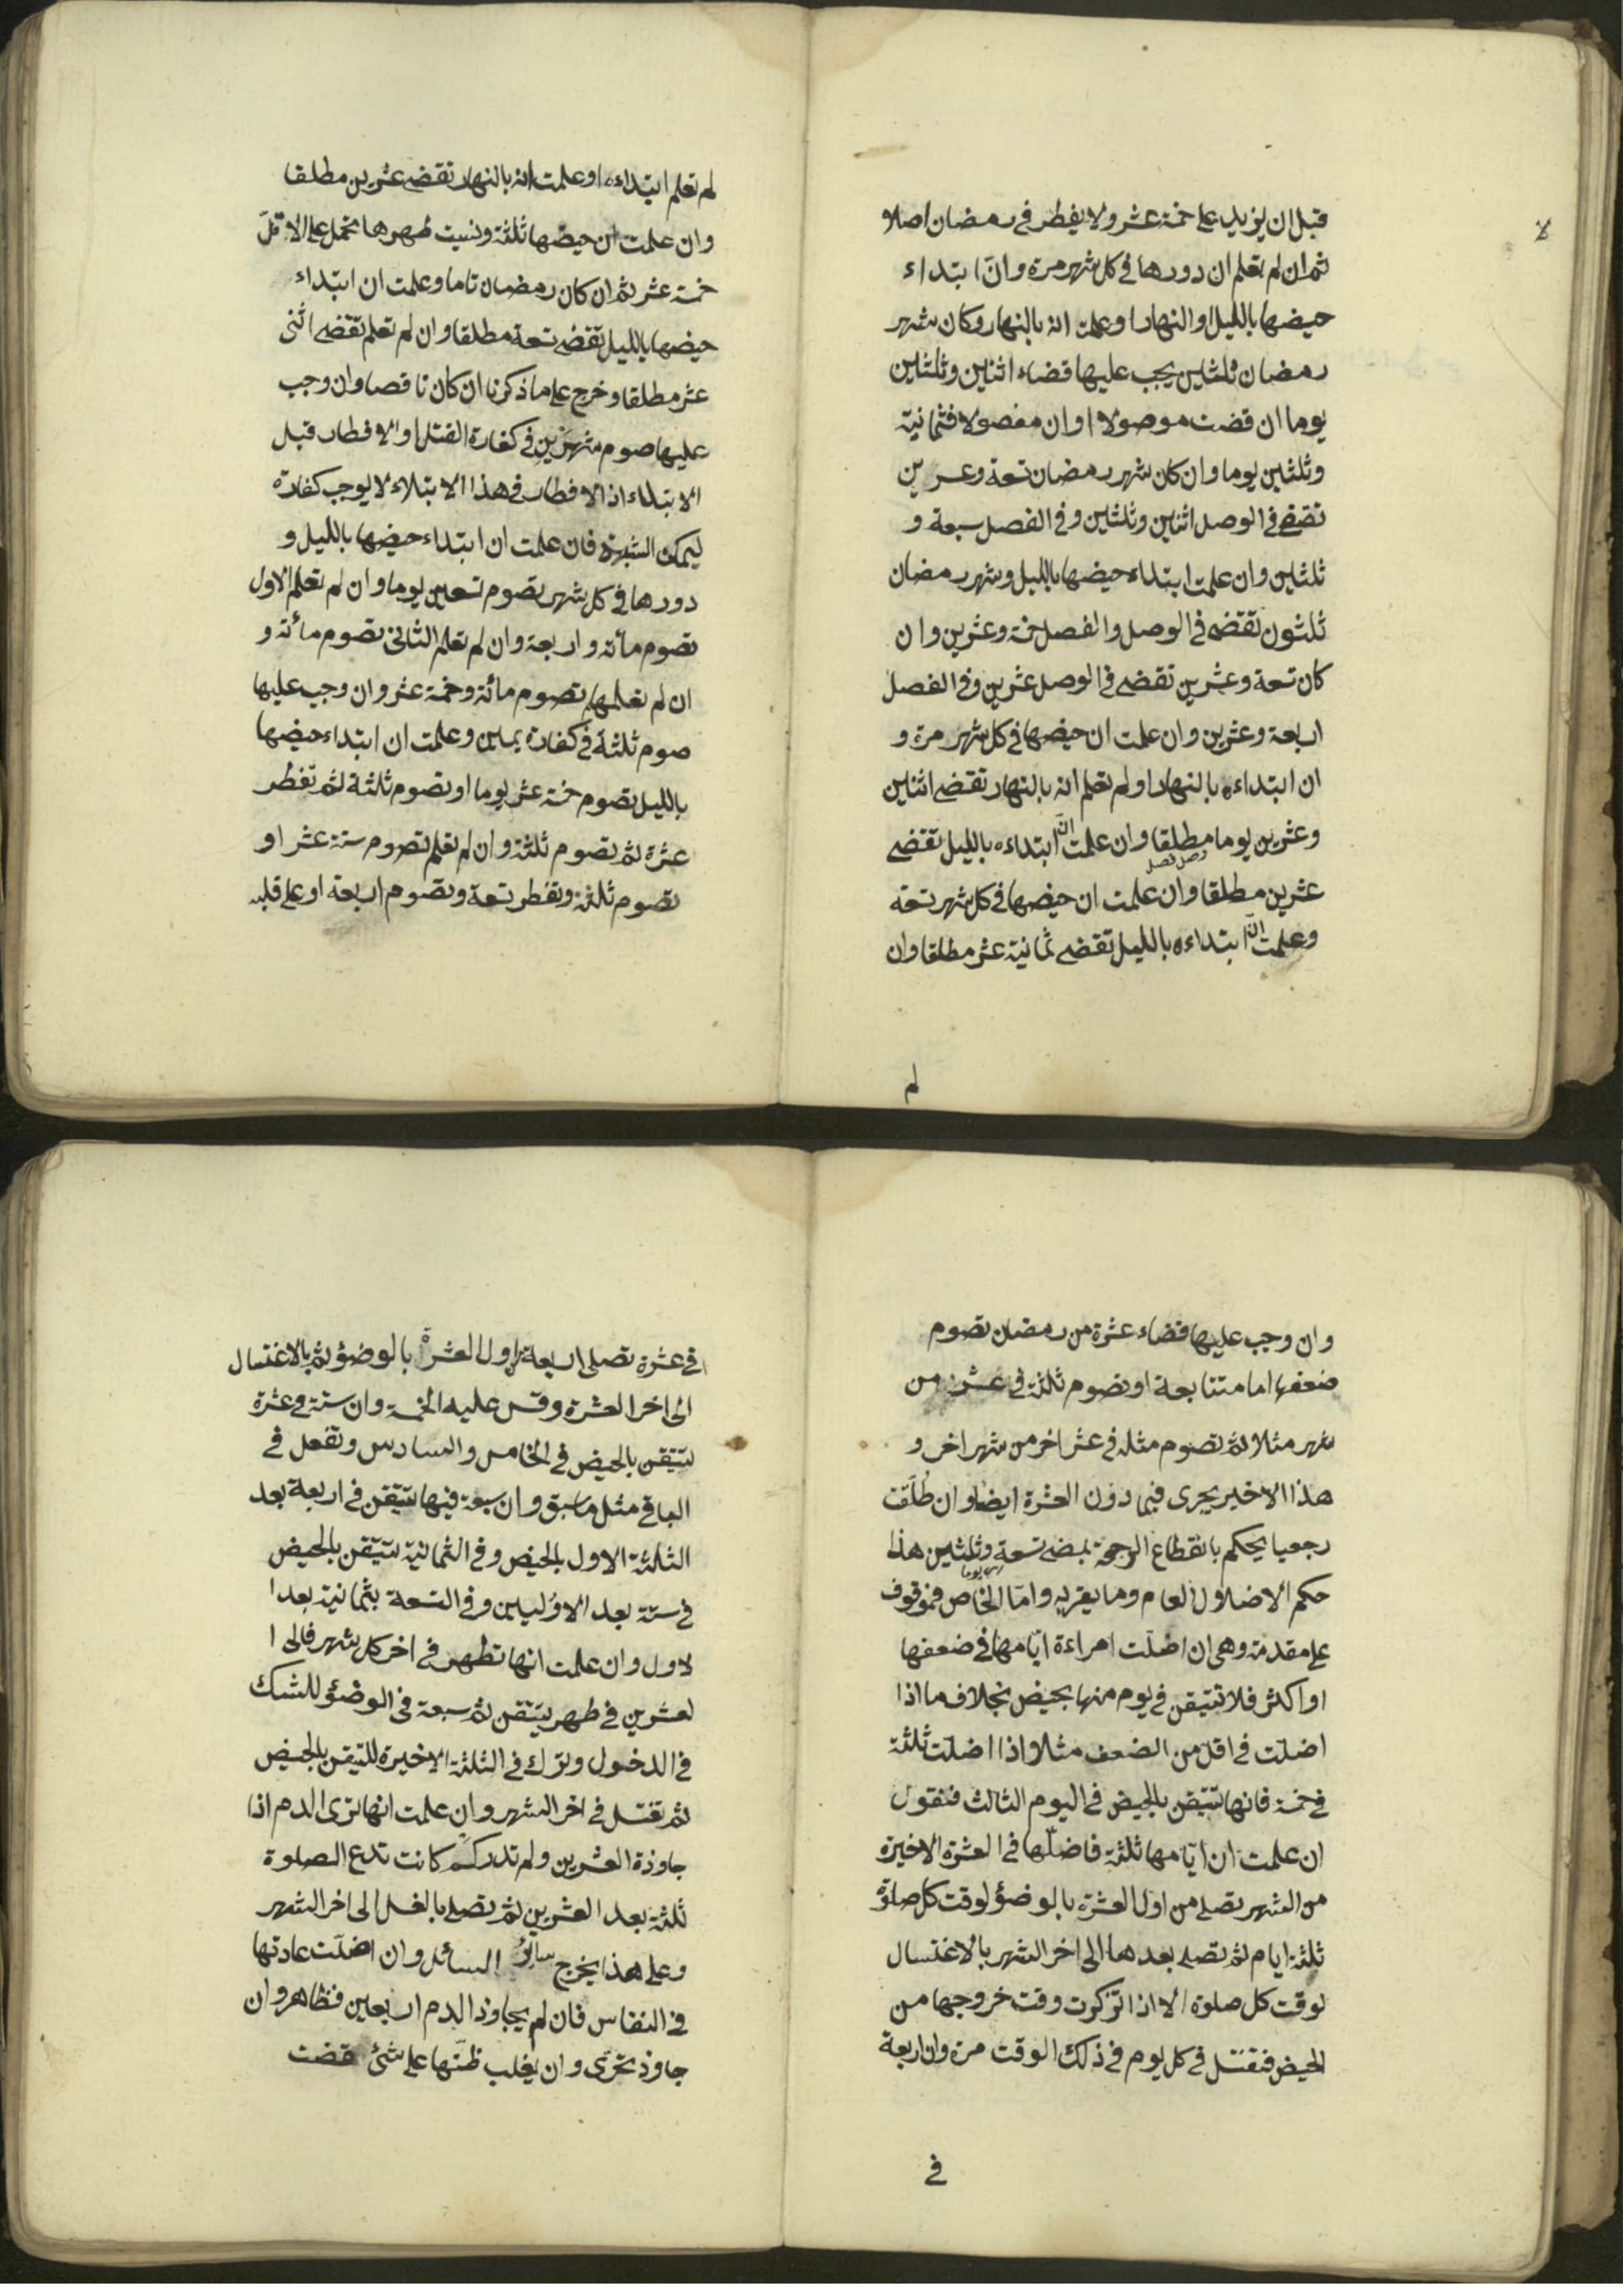 قبل ان يزيد على خمسة عشر ولا يفطر في رمضان اصلا
ثم ان لم تعلم ان دورها في كل شهر مرة وانّ ابتداء
حيضها بالليل او النهار او علمت انه بالنهار وكان شهر
رمضان ثلثين يجب عليها قضاء اثنين وثلثين
يوما ان قضت موصولا او ان مفصولا فثمانية
وثلثين يوما وان كان شهر رمضان تسعة وعشرين
تقضي في الوصل اثنين وثلثين وفي الفصل سبعة و
ثلثين وان علمت ابتداء حيضها بالليل وشهر رمضان
ثلثون تقضي في الوصل والفصل خمسة وعشرين وان
كان تسعة وعشرين تقضي في الوصل عشرين وفي الفصل
اربعة وعشرين وان علمت ان حيضها في كل شهر مرة و
ان ابتداءه بالنهار او لم تعلم انه بالنهار تقضي اثنين
وعشرين يوما مطلقا وان علمت انّ ابتداءه بالليل تقضي
وصل فصل
عشرين مطلقا وان علمت ان حيضها في كل شهر تسعة
وعلمت انّ ابتداءه بالليل تقضي ثمانية عشر مطلقا وان
لم
لم تعلم ابتداءه او علمت انه بالنهار تقضي عشرين مطلقا
وان علمت ان حيضها ثلثة ونسيت طهرها تحمل على الاقلّ
خمسة عشر ثم ان كان رمضان تاما وعلمت ان ابتداء
حيضها بالليل تقضي تسعة مطلقا وان لم تعلم تقضي اثنى
عشر مطلقا وخرج على ما ذكرنا ان كان ناقصا وان وجب
عليها صوم شهرين في كفارة القتل او الافطار قبل
الابتلاء اذ الافطار في هذا الابتلاء لا يوجب كفارة
ليمكن الشبهة فان علمت ان ابتداء حيضها بالليل و
دورها في كل شهر تصوم تسعين يوما وان لم تعلم الاول
تصوم مائة واربعة وان لم تعلم الثاني تصوم مائة و
ان لم تعلمها تصوم مائة وخمسة عشر وان وجب عليها
صوم ثلثة في كفارة يمين وعلمت ان ابتداء حيضها
بالليل تصوم خمسة عشر يوما او تصوم ثلثة ثم تفطر
عشرة ثم تصوم ثلثة وان لم تعلم تصوم ستة عشر او
تصوم ثلثة وتفطر تسعة وتصوم اربعة او على قلبه
وان وجب عليها قضاء عشرة من رمضان تصوم
ضعفها اما متتابعة او تصوم ثلثة في عشر من
شهر مثلا ثم تصوم مثله في عشر اخر من شهر اخر و
هذا الاخير يجرى فيما دون العشرة ايضا وان طُلّقت
رجعيا يحكم بانقطاع الرجعة بمضي تسعة وثلثين هذا
يوما
حكم الاضلال العام وما يقربه وامّا الخاص فموقوف
على مقدمة وهي ان اضلّت امراءة ايّامها في ضعفها
او اكثر فلا تتيقن في يوم منها بحيض بخلاف ما اذا
اضلت في اقل من الضعف مثلا اذا اضلت ثلثة
في خمسة فانها تتيقن بالحيض في اليوم الثالث فنقول
ان علمت ان ايّامها ثلثة فاضلّها في العشرة الاخيرة
من الشهر تصلي من اول العشرة بالوضؤ لوقت كل صلوة
ثلثة ايام ثم تصلي بعدها الى اخر الشهر بالاغتسال
لوقت كل صلوة الا اذا تذكرت وقت خروجها من
الحيض فتغتسل في كل يوم في ذلك الوقت مرة وان اربعة
في
في عشرة تصلى اربعة من اول العشرة بالوضؤ ثم بالاغتسال
الى اخر العشرة وقس عليه الخمسة وان ستة في عشرة
تتيقن بالحيض في الخامس والسادس وتفعل في
الباقي مثل ما سبق وان سبعة فيها تتيقن في اربعة بعد
الثلثة الاول بالحيض وفي الثمانية تتيقن بالحيض
في ستة بعد الاوّليين وفي التسعة بثمانية بعد ا
لاول وان علمت انها تطهر في اخر كل شهر فالى ا
لعشرين في طهر بيقين ثم سبعة في الوضؤ للشك
في الدخول وترك في الثلثة الاخيرة للتيقن بالحيض
ثم تغتسل في اخر الشهر وان علمت انها ترى الدم اذا
جاوزة العشرين ولم تدر كم كانت تدع الصلوة
ثلثة بعد العشرين ثم تصلي بالغسل الى اخر الشهر
وعلى هذا يخرج سائر المسائل وان اضلّت عادتها
في النفاس فان لم يجاوز الدم اربعين فظاهر وان
جاوز تحرّى وان يغلب ظنّها على شئ قضت